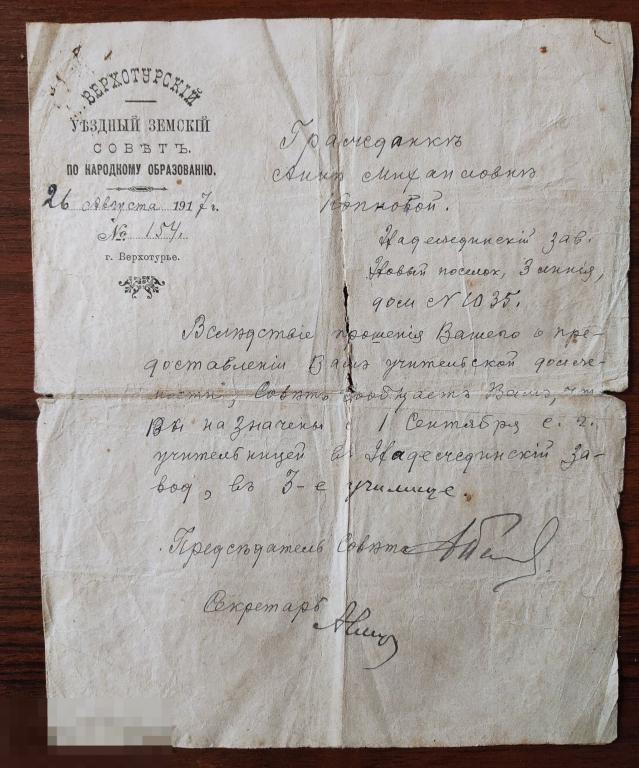 ВЕРХОТУРСКІЙ
УѢЗДНЫЙ ЗЕМСКІЙ
СОВѢТЪ
ПО НАРОДНОМУ ОБРАЗОВАНІЮ.
26 Августа 1917 г.
№ 154.
г. Верхотурье.
Гражданкѣ
Аннѣ Михайловнѣ
Надеждинскій зав.
Новый поселок, 3 линія,
дом № 35.
Вслѣдствіе прошенія Вашего о пре-
доставленіи Вамъ учительской долж-
ности, Совѣтъ сообщает Вамъ, что
Вы назначены с 1 Сентября с. г.
учительницей в Надеждинскій за-
вод, въ 3-е училище.
Предсѣдатель Совѣта
Секретарь